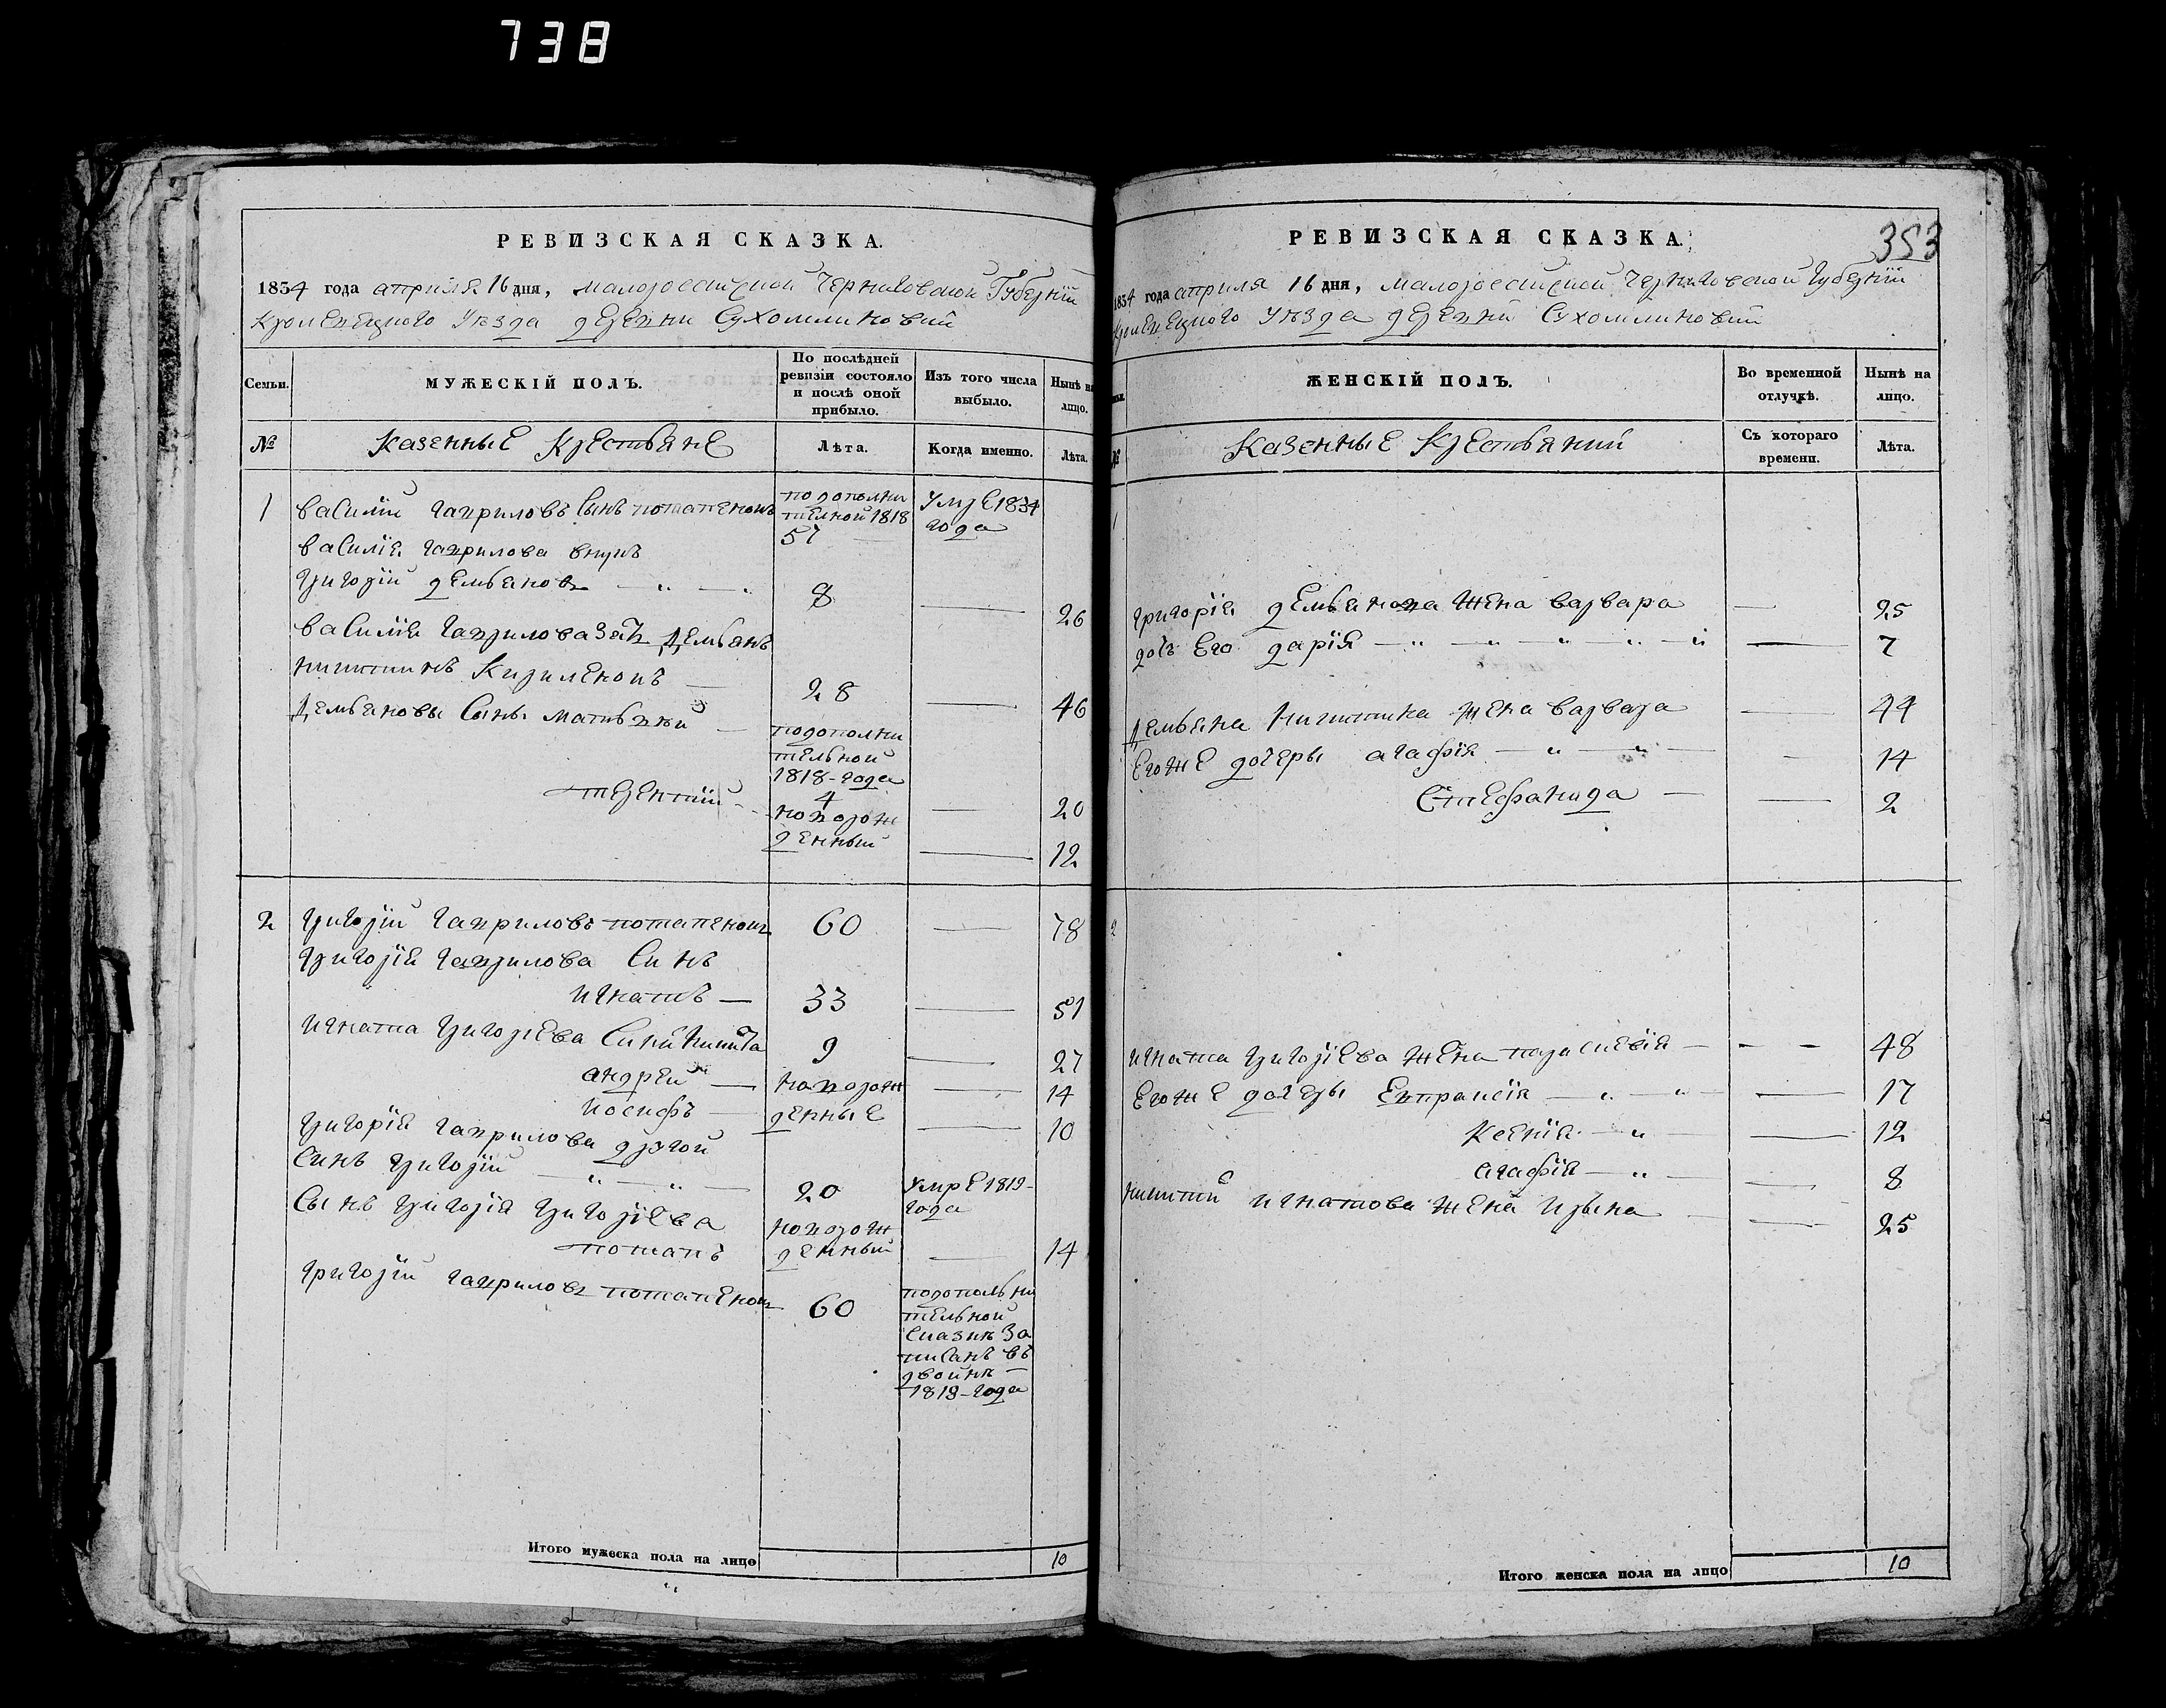 738
РЕВИЗСКАЯ СКАЗКА.
1834 года апреля 16 дня, Малороссийской Черниговской Губернїи
Кролевецкого Уѣзда деревни Сухомлиновки
Семьи.
МУЖЕСКІЙ ПОЛЪ.
По послѣдней ревизіи состояло и послѣ оной прибыло.
Изъ того числа выбыло.
Нынѣ на лицо.
№
Казенные Крестьяне
Лѣта.
Когда именно.
Лѣта.
1
василїй гавриловъ сынъ потапенокъ
по дополни
телной 1818
57
умре 1834
года
василїя гаврилова внукъ
григорїй демьяновъ
8
26
василїя гаврилова зять Демьянъ
никитинъ Кириленокъ
28
46
Демьяновы сыны матвѣй
по дополни
тельной
1818-года
4
20
терентїй
новорож
денный
12
2
григорїй гавриловъ потапенокъ
60
78
григорїя гаврилова синъ
игнатъ
33
51
игната григорїева сини никита
9
27
андрей
новорож
14
иосифъ
денные
10
григорїя гаврилова другой
синъ григорїй
20
умре 1819-
года
сынъ григорїя григорїева
потапъ
новорож
денный
14
григорїй гавриловъ потапенокъ
60
по дополъни
тельной
сказкѣ за
писанъ въ
двойнѣ
1818-года
Итого мужеска пола на лицо
10
РЕВИЗСКАЯ СКАЗКА.
353
1834 года апреля 16 дня, Малороссийской Черниговской Губернїи
Кролевецкого Уѣзда деревни Сухомлиновки
ЖЕНСКІЙ ПОЛЪ.
Во временной отлучкѣ.
Нынѣ на лицо.
№
Казенные Крестьянки
Съ котораго времени.
Лѣта.
1
григорїя демьянова жена варвара
25
дочь его дарїя
7
Демьяна никитина жена варвара
44
его же дочеры агафїя
14
стефанида
2
2
игната григорїева жена параскевїя
48
его же дочеры евпраксїя
17
ксенїя
12
агафїя
8
никиты игнатова жена ирына
25
Итого женска пола на лицо
10